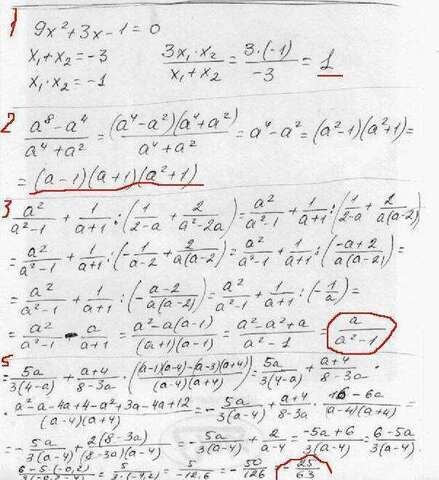 1
9x²+3x-1=0
x₁+x₂=-3 3x₁·x₂/(x₁+x₂) = 3·(-1)/-3 = 1
x₁·x₂=-1
2 (a⁸-a⁴)/(a⁴+a²) = (a⁴-a²)(a⁴+a²)/(a⁴+a²) = a⁴-a² = (a²-1)(a²+1)=
= (a-1)(a+1)(a²+1)
3 a²/(a²-1) + 1/(a+1) : (1/(2-a) + 2/(a²-2a)) = a²/(a²-1) + 1/(a+1) : (1/(2-a) + 2/(a(a-2))
= a²/(a²-1) + 1/(a+1) : (-1/(a-2) + 2/(a(a-2)) = a²/(a²-1) + 1/(a+1) : ((-a+2)/(a(a-2)) =
= a²/(a²-1) + 1/(a+1) : (-(a-2)/(a(a-2)) = a²/(a²-1) + 1/(a+1) : (-1/a) =
= a²/(a²-1) - a/(a+1) = (a²-a(a-1))/((a+1)(a-1)) = (a²-a²+a)/(a²-1) = a/(a²-1)
5
= 5a/(3(4-a)) + (a+4)/(8-3a) · ((a-1)(a-4)-(a-3)(a+4))/((a-4)(a+4)) = 5a/(3(a-4)) + (a+4)/(8-3a) ·
· (a²-a-4a+4-a²+3a-4a+12)/((a-4)(a+4) = -5a/(3(a-4)) + (a+4)/(8-3a) · (16-6a)/((a-4)(a+4) =
= -5a/(3(a-4)) + 2(8-3a)/((8-3a)(a-4)) = -5a/(3(a-4)) + 2/(a-4) = (-5a+6)/(3(a-4)) = (6-5a)/(3(a-4).
= 5/(-12,6) = -50/126 = -25/63